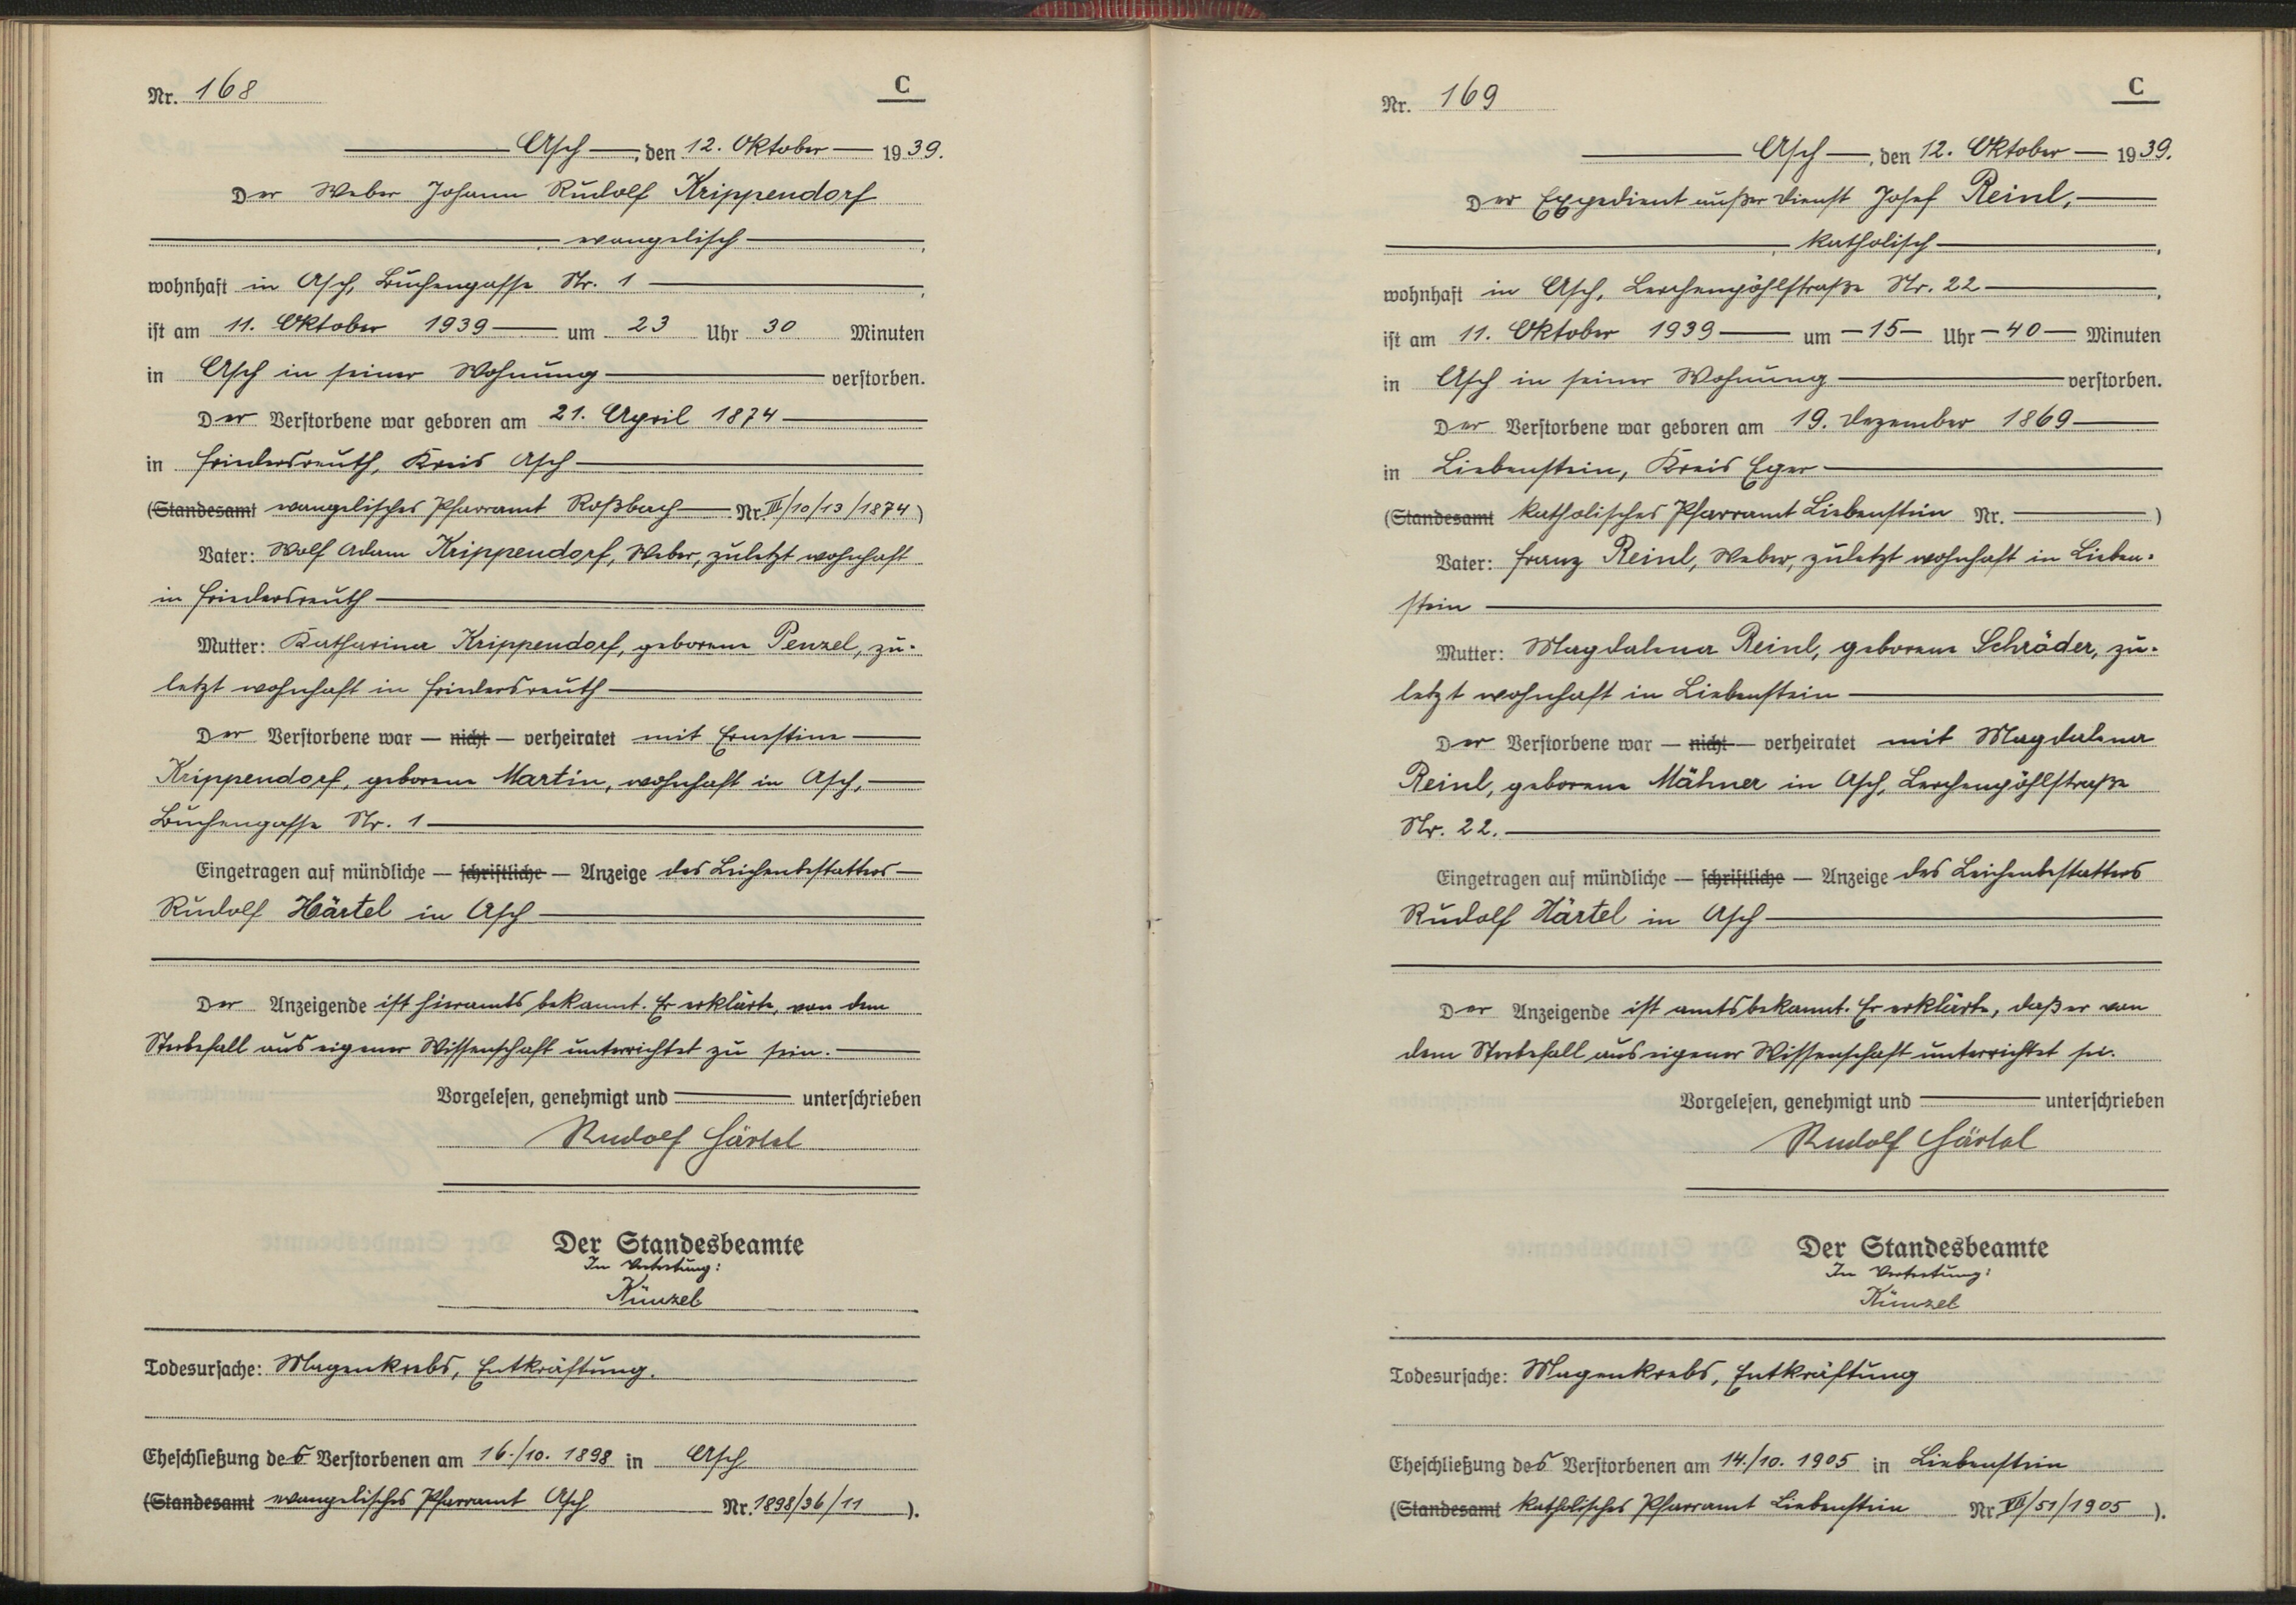 Nr. 168
C
Asch, den 12. Oktober 1939.
Der Weber Johann Rudolf Krippendorf
, evangelisch,
wohnhaft in Asch, Buchengasse Nr. 1,
ist am 11. Oktober 1939 um 23 Uhr 30 Minuten
in Asch in seiner Wohnung verstorben.
Der Verstorbene war geboren am 21. April 1874
in Friedersreuth, Kreis Asch
(Standesamt evangelisches Pfarramt Roßbach Nr. III/10/13/1874)
Vater: Wolf Adam Krippendorf, Weber, zuletzt wohnhaft
in Friedersreuth
Mutter: Katharina Krippendorf, geborene Penzel, zu-
letzt wohnhaft in Friedersreuth
Der Verstorbene war — nicht — verheiratet mit Ernestine
Krippendorf, geborene Martin, wohnhaft in Asch,
Buchengasse Nr. 1
Eingetragen auf mündliche — schriftliche — Anzeige des Leichenbestatters
Rudolf Härtel in Asch
Der Anzeigende ist hieramts bekannt. Er erklärte, von dem
Sterbefall aus eigener Wissenschaft unterrichtet zu sein.
Vorgelesen, genehmigt und unterschrieben
Rudolf Härtel
Der Standesbeamte
In Vertretung:
Künzel
Todesursache: Magenkrebs, Entkräftung.
Eheschließung des Verstorbenen am 16./10. 1898 in Asch
(Standesamt evangelisches Pfarramt Asch Nr. 1898/36/11).
Nr. 169
C
Asch, den 12. Oktober 1939.
Der Expedient außer Dienst Josef Reinl,
, katholisch,
wohnhaft in Asch, Lerchenpöhlstraße Nr. 22,
ist am 11. Oktober 1939 um 15 Uhr 40 Minuten
in Asch in seiner Wohnung verstorben.
Der Verstorbene war geboren am 19. Dezember 1869
in Liebenstein, Kreis Eger
(Standesamt katholisches Pfarramt Liebenstein Nr. )
Vater: Franz Reinl, Weber, zuletzt wohnhaft in Lieben-
stein
Mutter: Magdalena Reinl, geborene Schräder, zu-
letzt wohnhaft in Liebenstein
Der Verstorbene war — nicht — verheiratet mit Magdalena
Reinl, geborene Mähner in Asch, Lerchenpöhlstraße
Nr. 22.
Eingetragen auf mündliche — schriftliche — Anzeige des Leichenbestatters
Rudolf Härtel in Asch
Der Anzeigende ist amtsbekannt. Er erklärte, daß er von
dem Sterbefall aus eigener Wissenschaft unterrichtet sei.
Vorgelesen, genehmigt und unterschrieben
Rudolf Härtel
Der Standesbeamte
In Vertretung:
Künzel
Todesursache: Magenkrebs, Entkräftung
Eheschließung des Verstorbenen am 14./10. 1905 in Liebenstein
(Standesamt katholisches Pfarramt Liebenstein Nr. VII/51/1905).